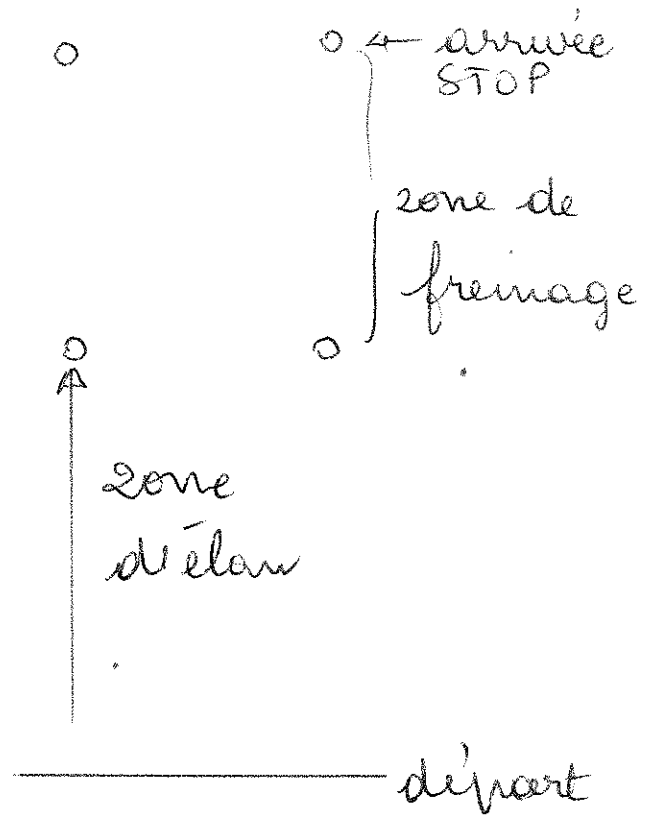 arrivée
STOP
zone de
freinage
zone
d'élan
départ